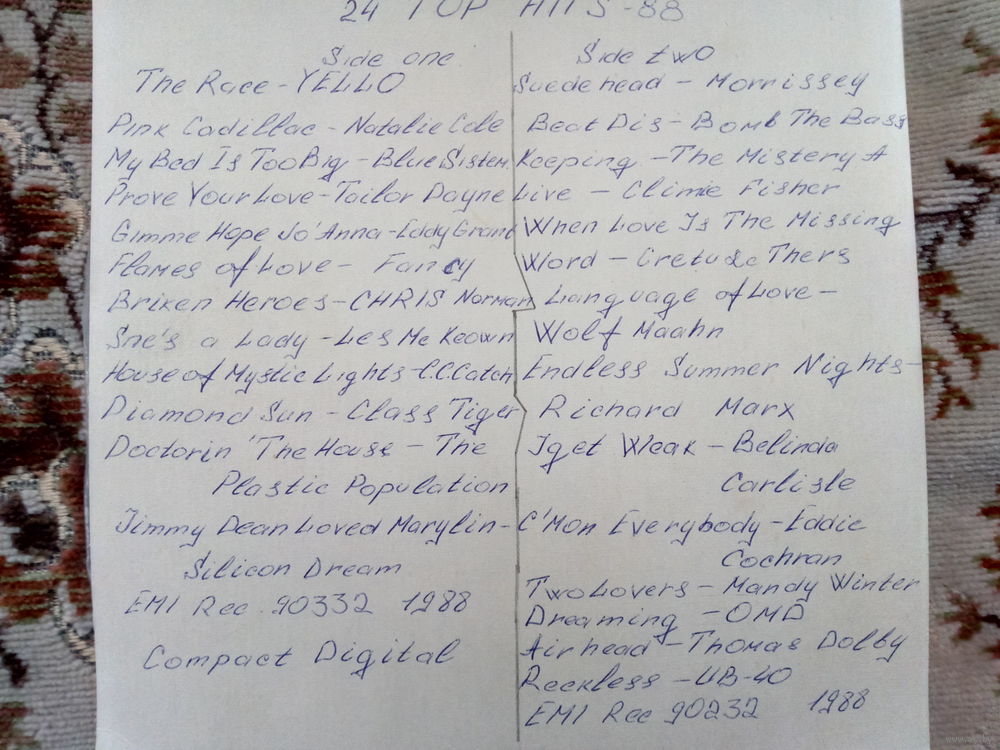 24 TOP HITS-88
Side one
The Race - YELLO
Pink Cadillac - Natalie Cole
My Bed Is Too Big - Blue Sistem
Prove Your Love - Tailor Dayne
Gimme Hope Jo'Anna - Eddy Grant
Flames of Love - Fancy
Briken Heroes - CHRIS Norman
She's a Lady - Les Mc Keown
House of Mystic Lights - C.C.Catch
Diamond Sun - Class Tiger
Doctorin 'The House - The
Plastic Population
Jimmy Dean Loved Marylin -
Silicon Dream
EMI Rec. 90332 1988
Compact Digital
Side two
Suedehead - Morrissey
Beat Dis - Bomb The Bass
Keeping - The Mistery A
Live - Climie Fisher
When Love Is The Missing
Word - Cretu & Thers
Language of Love -
Wolf Maahn
Endless Summer Nights -
Richard Marx
I get Weak - Belinda
Carlisle
C'Mon Everybody - Eddie
Cochran
Two Lovers - Mandy Winter
Dreaming - OMD
Airhead - Thomas Dolby
Reckless - UB-40
EMI Rec 90232 1988